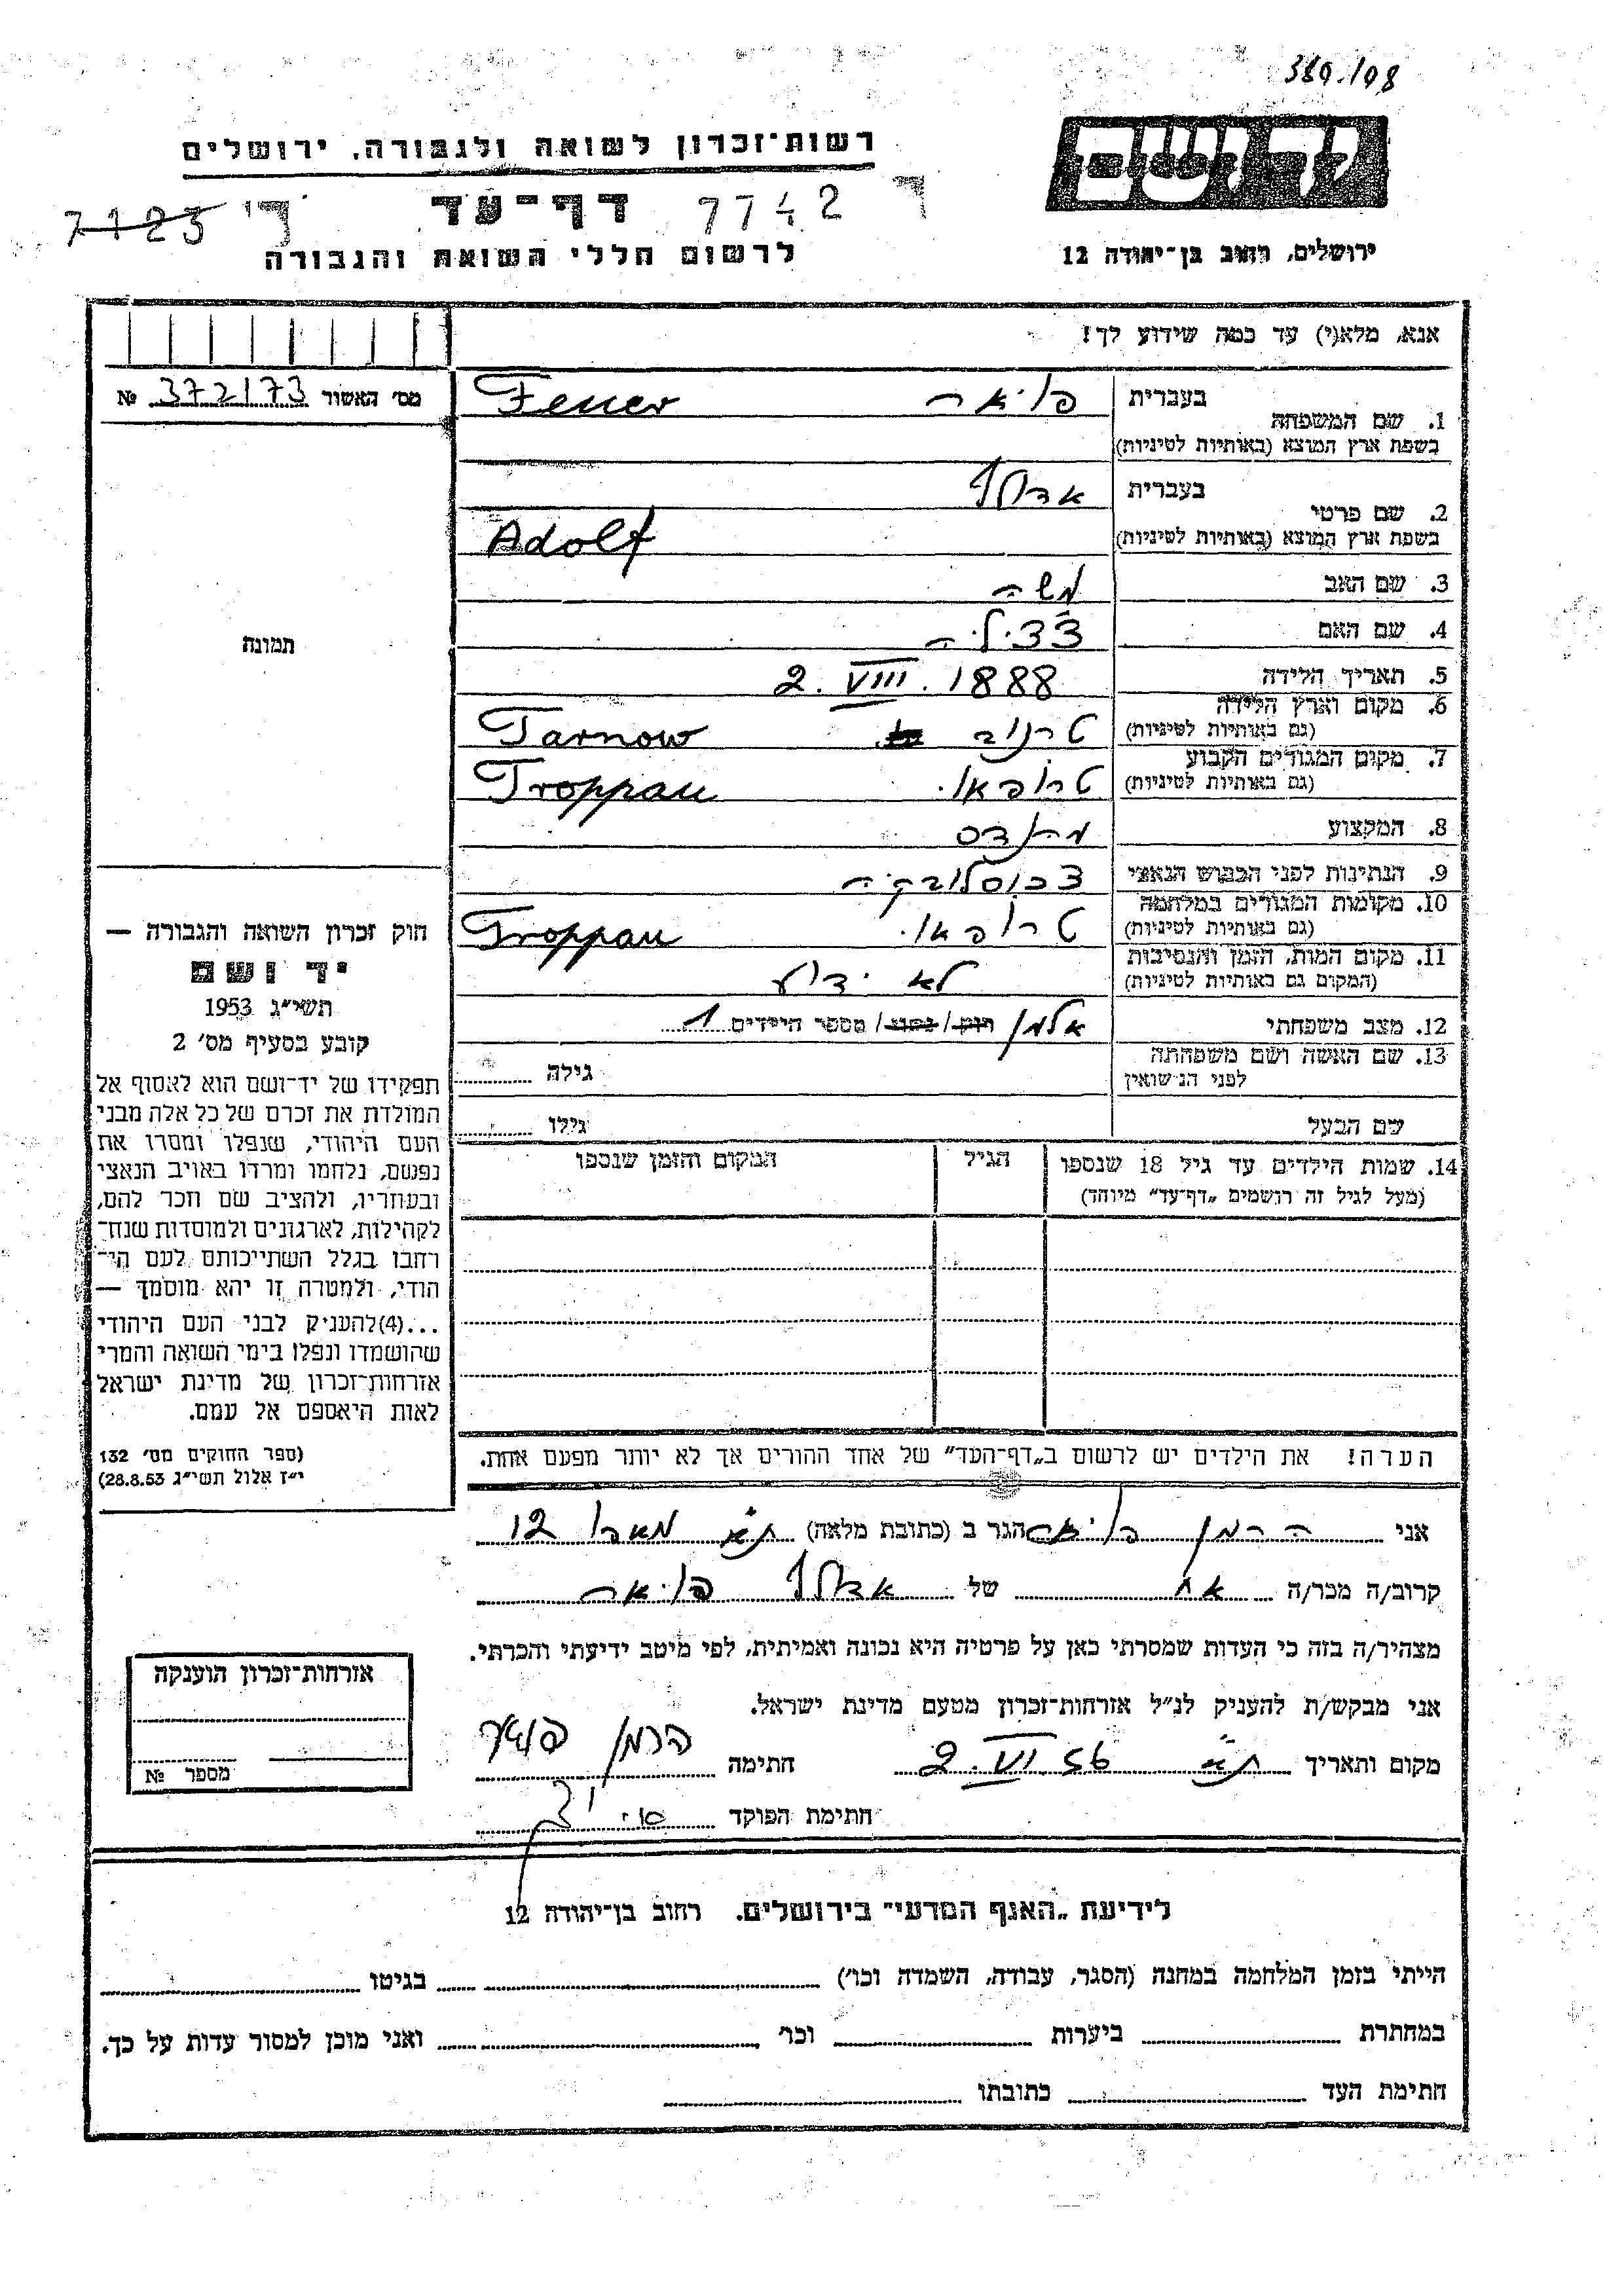 389.198
יד ושם
ירושלים, רחוב בן־יהודה 12
רשות־זכרון לשואה ולגבורה, ירושלים
דף־עד 7742 ד
7123 ד'
לרשום חללי השואה והגבורה
אנא, מלא(י) עד כמה שידוע לך!
מס' האשור 372173 №
תמונה
1. שם המשפחה
בעברית פויאר
בשפת ארץ המוצא (באותיות לטיניות) Feuer
2. שם פרטי
בעברית אדולף
בשפת ארץ המוצא (באותיות לטיניות) Adolf
3. שם האב משה
4. שם האם צציליה
5. תאריך הלידה 2. VIII. 1888
6. מקום וארץ הלידה
(גם באותיות לטיניות) טרנוב Tarnow
7. מקום המגורים הקבוע
(גם באותיות לטיניות) טרופאו. Troppau
8. המקצוע מהנדס
9. הנתינות לפני הכבוש הנאצי צכוסלובקיה
10. מקומות המגורים במלחמה
(גם באותיות לטיניות) טרופאו. Troppau
11. מקום המות, הזמן והנסיבות
(המקום גם באותיות לטיניות) לא ידוע
12. מצב משפחתי אלמן רוק/ נשוי/ מספר הילדים 1
13. שם האשה ושם משפחתה
לפני הנישואין
גילה
שם הבעל גילו
14. שמות הילדים עד גיל 18 שנספו
(מעל לגיל זה רושמים „דף־עד" מיוחד)
הגיל
המקום והזמן שנספו
הערה! את הילדים יש לרשום ב„דף־העד" של אחד ההורים אך לא יותר מפעם אחת.
חוק זכרון השואה והגבורה —
יד ושם
תשי"ג 1953
קובע בסעיף מס' 2
תפקידו של יד־ושם הוא לאסוף אל
המולדת את זכרם של כל אלה מבני
העם היהודי, שנפלו ומסרו את
נפשם, נלחמו ומרדו באויב הנאצי
ובעוזריו, ולהציב שם וזכר להם,
לקהילות, לארגונים ולמוסדות שנח־
רחבו בגלל השתייכותם לעם הי־
הודי, ולמטרה זו יהא מוסמך —
...(4)להעניק לבני העם היהודי
שהושמדו ונפלו בימי השואה והמרי
אזרחות־זכרון של מדינת ישראל
לאות היאספם אל עמם.
(ספר החוקים מס' 132
י"ז אלול תשי"ג 28.8.53)
אני הרמן פויאר הגר ב (כתובת מלאה) ת"א מאפו 12
קרוב/ה מכר/ה אח של אדולף פויאר
מצהיר/ה בזה כי העדות שמסרתי כאן על פרטיה היא נכונה ואמיתית, לפי מיטב ידיעתי והכרתי.
אני מבקש/ת להעניק לנ"ל אזרחות־זכרון מטעם מדינת ישראל.
מקום ותאריך ת"א 2. VI. 56 חתימה הרמן פויאר
חתימת הפוקד
אזרחות־זכרון הוענקה
מספר №
לידיעת „האגף המדעי" בירושלים. רחוב בן־יהודה 12
הייתי בזמן המלחמה במחנה (הסגר, עבודה, השמדה וכו') בגיטו
במחתרת ביערות וכו' ואני מוכן למסור עדות על כך.
חתימת העד כתובתו